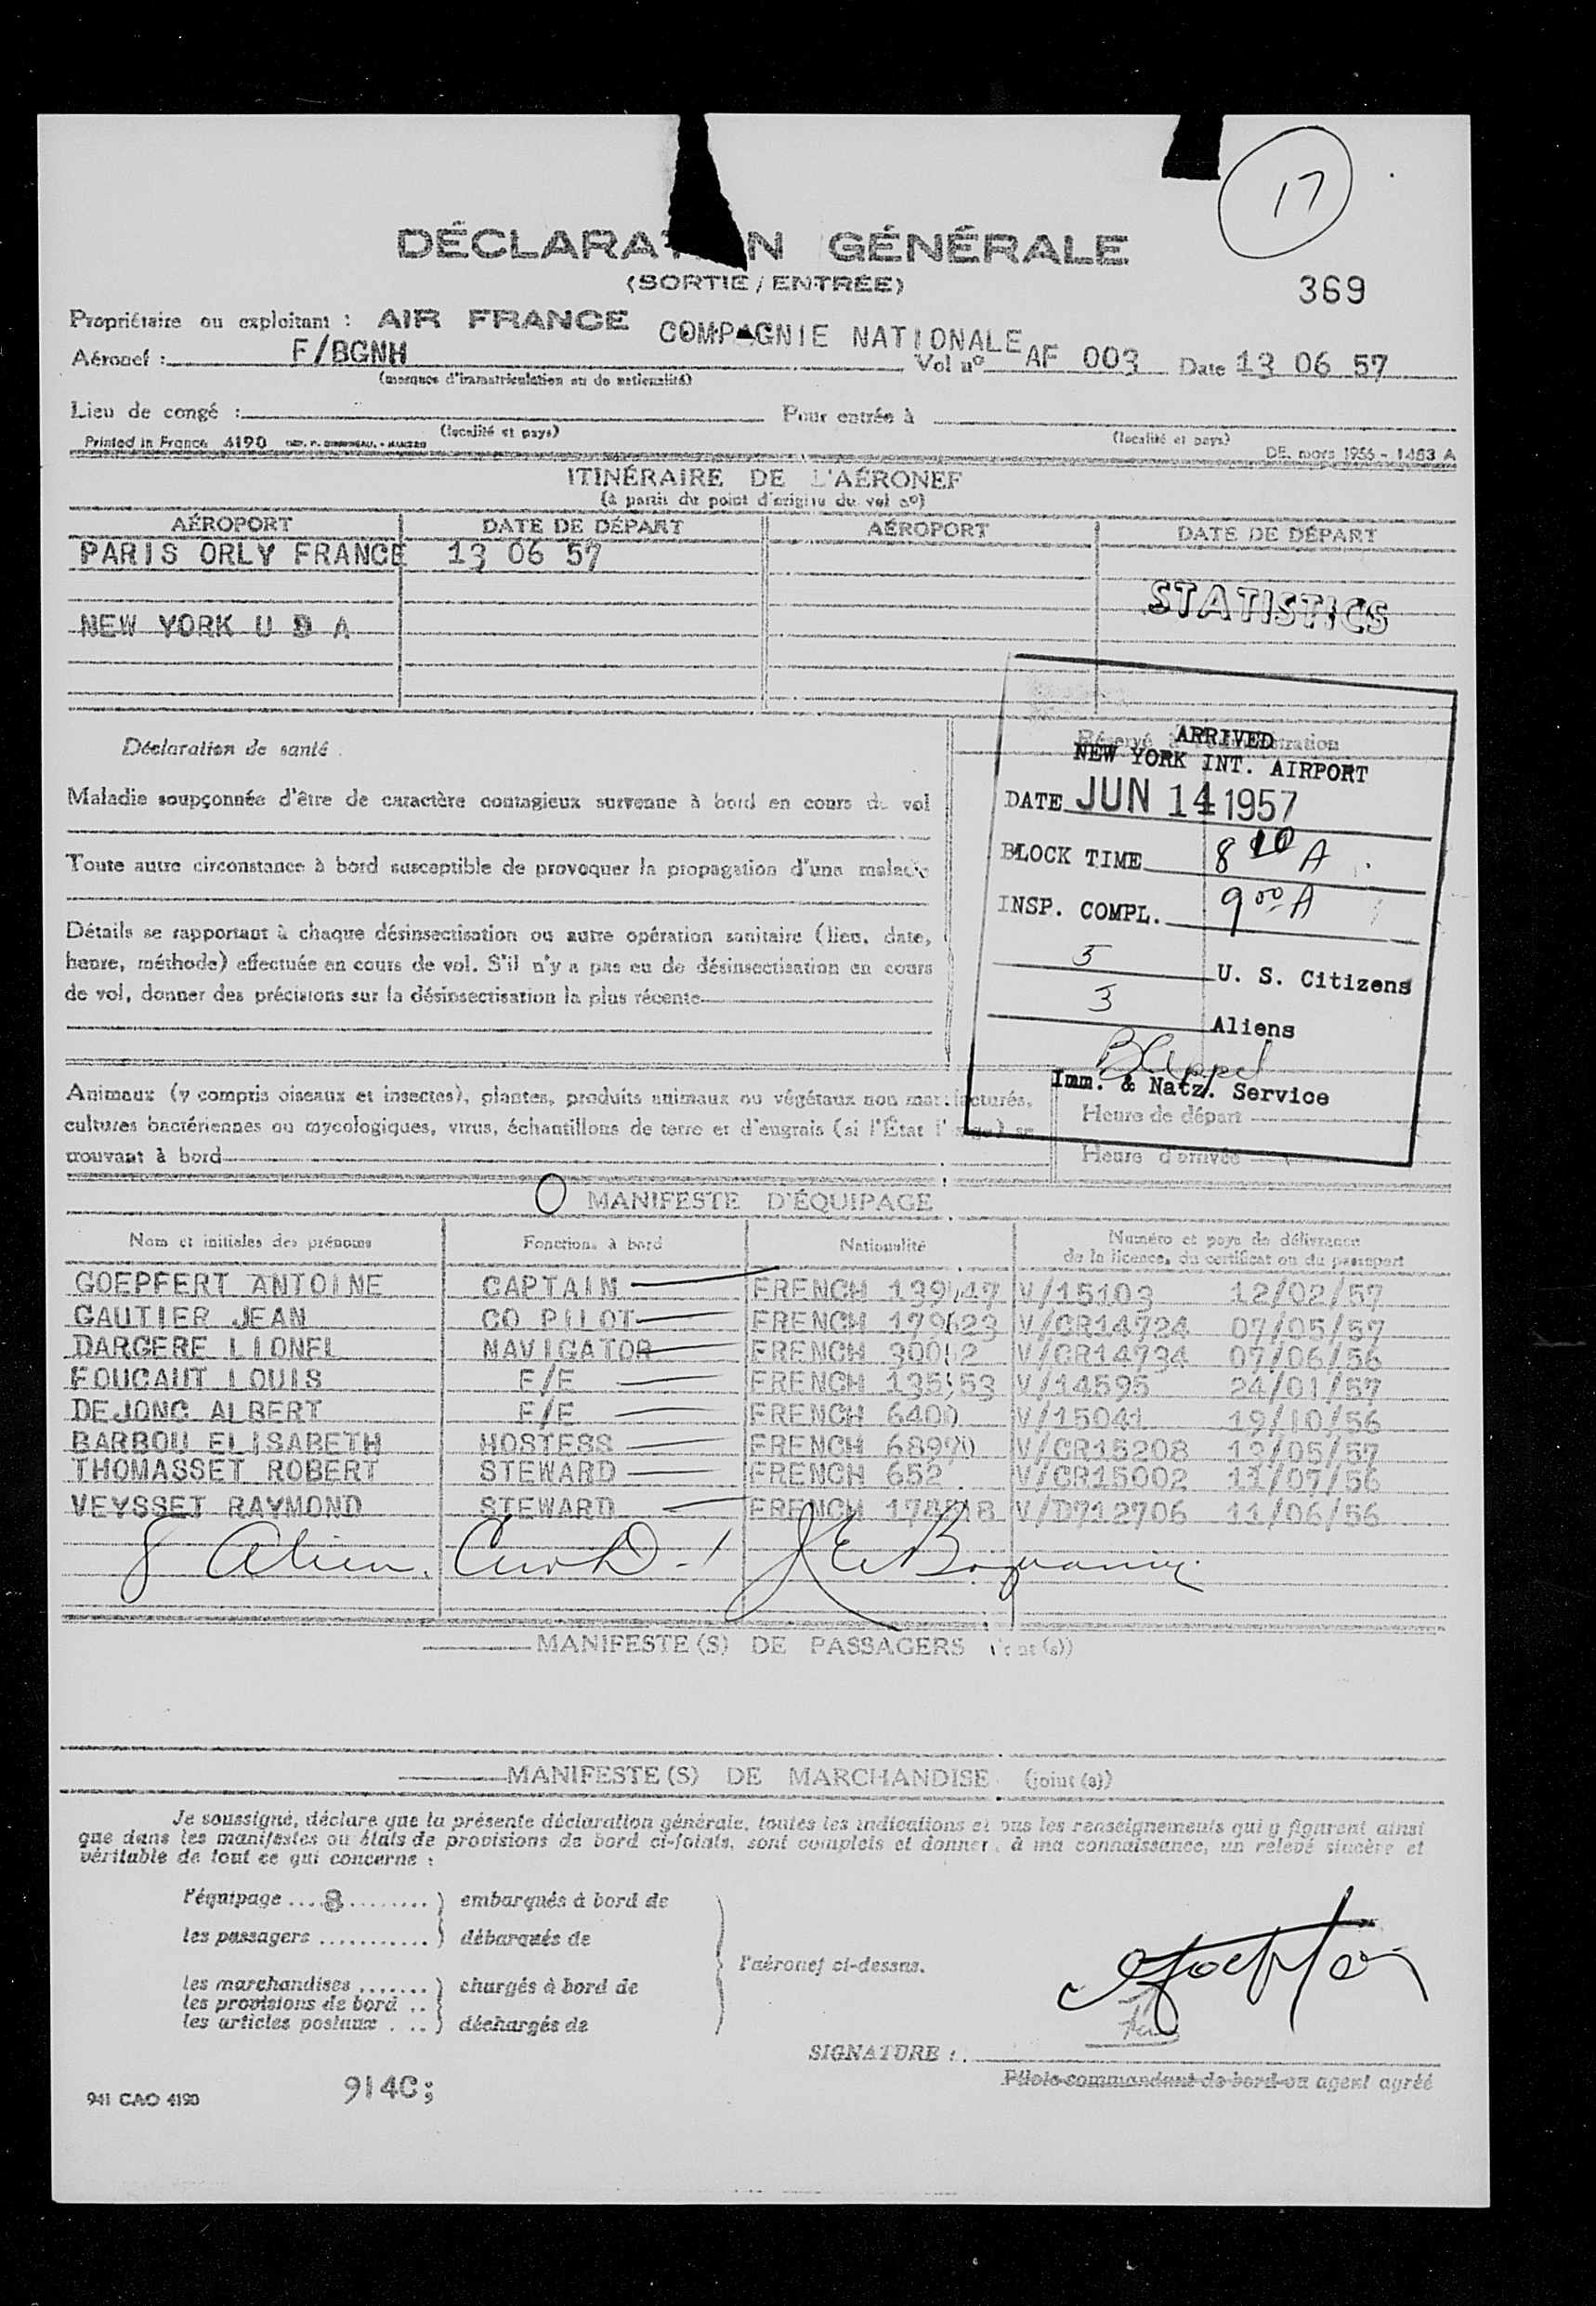 17
DÉCLARA N GÉNÉRALE
(SORTIE / ENTRÉE)
369
Propriétaire ou exploitant : AIR FRANCE COMPAGNIE NATIONALE
Aéronef : F/BGNH Vol nº AF 003 Date 13 06 57
(marques d'immatriculation ou de nationalité)
Lieu de congé : Pour entrée à
(localité et pays) (localité et pays)
Printed in France 4190 DE. mars 1956 - 1483 A
ITINÉRAIRE DE L'AÉRONEF
(à partir du point d'origine du vol nº)
AÉROPORT DATE DE DÉPART AÉROPORT DATE DE DÉPART
PARIS ORLY FRANCE 13 06 57
STATISTICS
NEW YORK U D A
Déclaration de santé
Maladie soupçonnée d'être de caractère contagieux survenue à bord en cours de vol
Toute autre circonstance à bord susceptible de provoquer la propagation d'une maladie
Détails se rapportant à chaque désinsectisation ou autre opération sanitaire (lieu, date,
heure, méthode) effectuée en cours de vol. S'il n'y a pas eu de désinsectisation en cours
de vol, donner des précisions sur la désinsectisation la plus récente
Réservé à tration
ARRIVED
NEW YORK INT. AIRPORT
DATE JUN 14 1957
BLOCK TIME 8 10 A
INSP. COMPL. 9 00 A
5 U. S. Citizens
3 Aliens
Imm. & Natz. Service
Heure de départ
Heure d'arrivée
Animaux (y compris oiseaux et insectes), plantes, produits animaux ou végétaux non manufacturés,
cultures bactériennes ou mycologiques, virus, échantillons de terre et d'engrais (si l'État l'exige) se
trouvant à bord
O MANIFESTE D'ÉQUIPAGE
Nom et initiales des prénoms Fonctions à bord Nationalité Numéro et pays de délivrance
de la licence, du certificat ou du passeport
GOEPFERT ANTOINE CAPTAIN FRENCH V/15103 12/02/57
GAUTIER JEAN CO PILOT FRENCH 179623 V/CR14724 07/05/57
DARGERE LIONEL NAVIGATOR FRENCH V/CR14734 07/06/56
FOUCAUT LOUIS F/E FRENCH V/14595 24/01/57
DEJONC ALBERT F/E FRENCH 6400 V/15041 19/10/56
BARBOU ELISABETH HOSTESS FRENCH 68970 V/CR15208 13/05/57
THOMASSET ROBERT STEWARD FRENCH 652 V/CR15002 11/07/56
VEYSSET RAYMOND STEWARD FRENCH V/D712706 11/06/56
8 Alien
MANIFESTE(S) DE PASSAGERS
MANIFESTE(S) DE MARCHANDISE (joint(s))
Je soussigné, déclare que la présente déclaration générale, toutes les indications et tous les renseignements qui y figurent ainsi
que dans les manifestes ou états de provisions de bord ci-joints, sont complets et donnent, à ma connaissance, un relevé sincère et
véritable de tout ce qui concerne :
l'équipage .... 8 ........ ) embarqués à bord de
les passagers ........... ) débarqués de
l'aéronef ci-dessus.
les marchandises ....... ) chargés à bord de
les provisions de bord ..
les articles postaux .... ) déchargés de
SIGNATURE :
Pilote commandant de bord ou agent agréé
941 CAO 4190
914C;